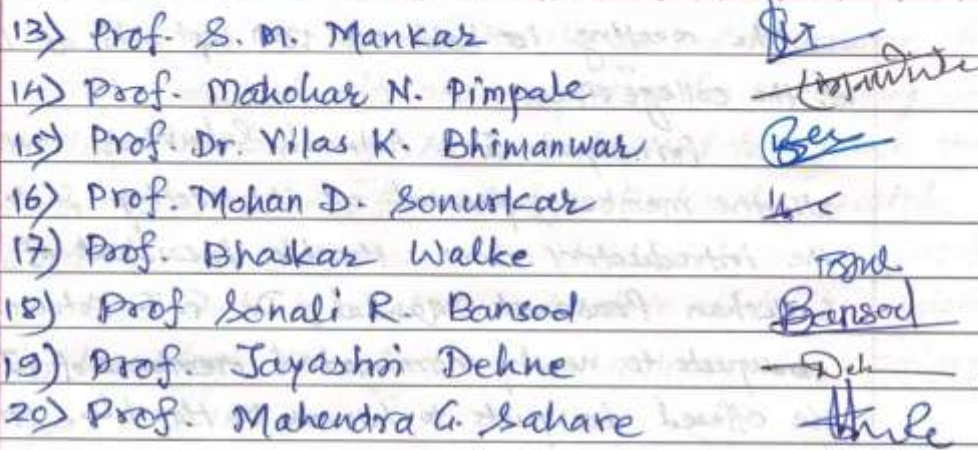 13) Prof. S. M. Mankar
14) Prof. Mahohar N. Pimpale
15) Prof. Dr. Vilas K. Bhimanwar
16) Prof. Mohan D. Sonuskar
17) Prof. Bhaskar Walke
18) Prof. Sonali R. Bansod Bansod
19) Prof. Jayashri Dehne
20) Prof. Mahendra G. Sahare